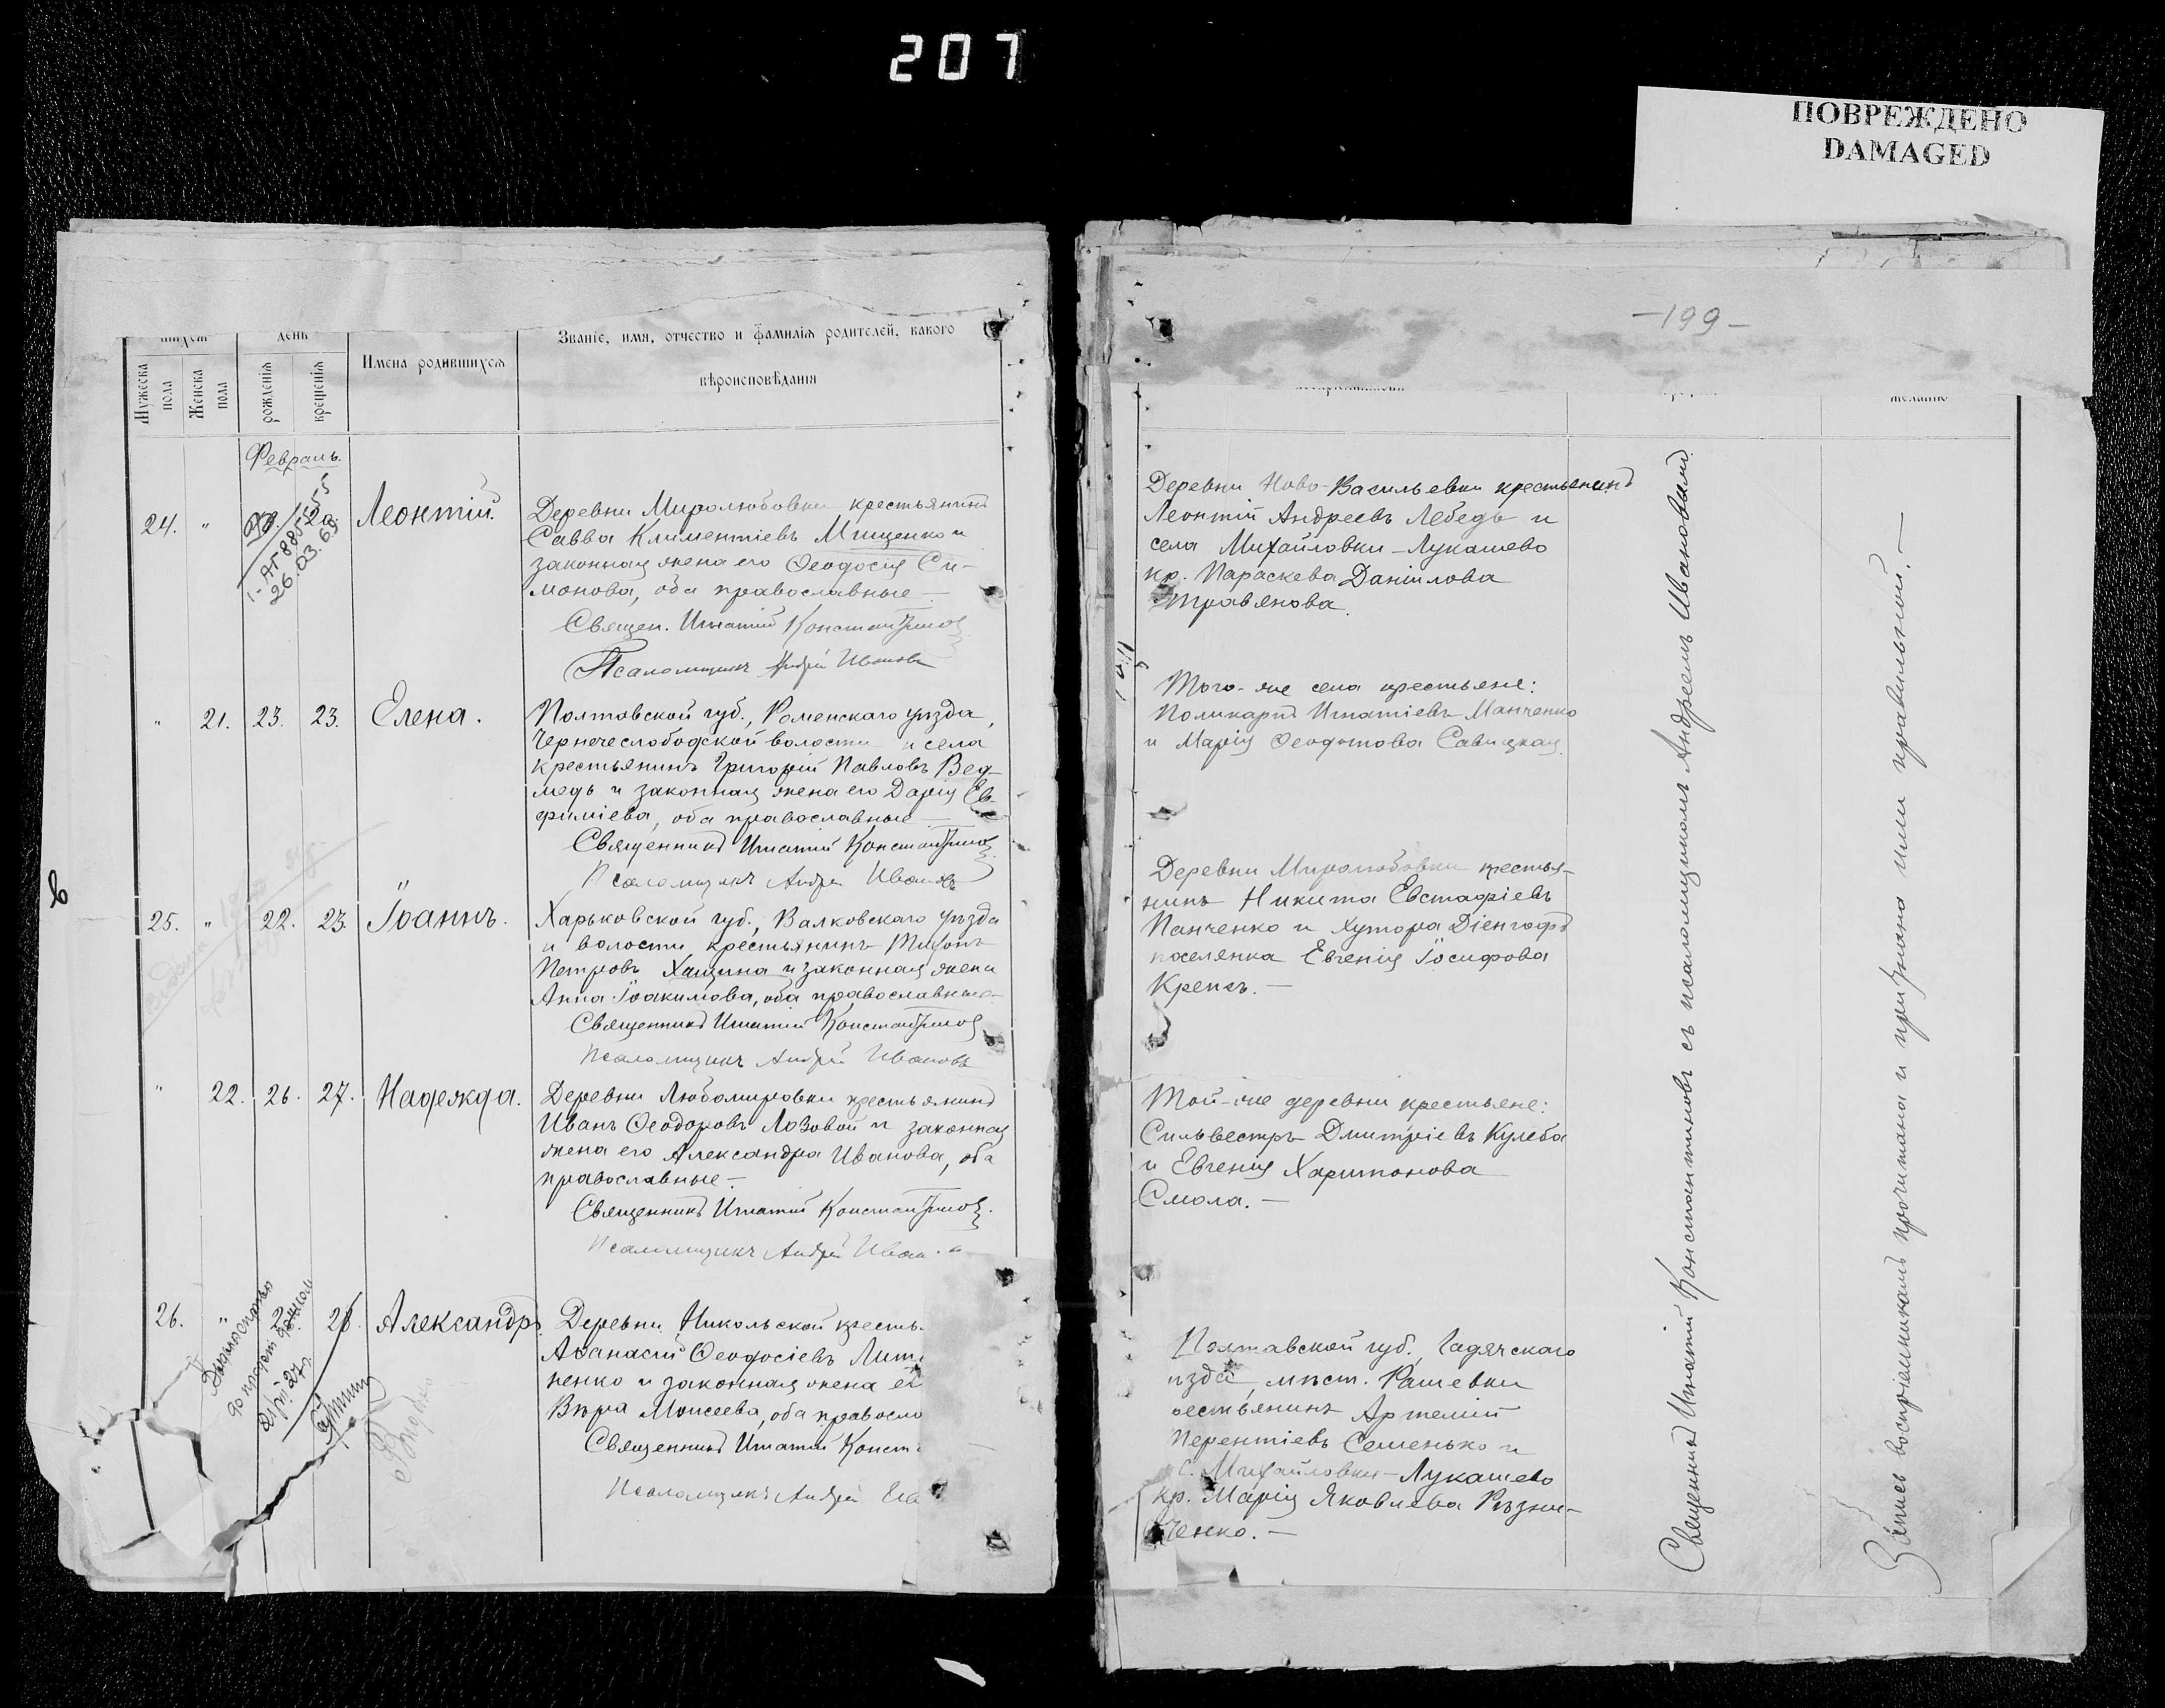 207
ПОВРЕЖДЕНО
DAMAGED
день
Званіе, имя, отчество и фамилія родителей, какого
вѣроисповѣданія
Имена родившихся
Мужеска пола
Женска пола
рожденія
крещенія
Февраль.
24. " 20. Леонтій.
1-АГ 885555
26.03.68
Деревни Миролюбовки крестьянинъ
Савва Климентіевъ Мищенко и
законная жена его Ѳеодосія Си-
монова, оба православные —
Священ. Игнатій Константинов
Псаломщикъ Андрей Ивановъ
" 21. 23. 23. Елена.
Полтовской губ., Роменскаго уѣзда,
Чернечеслободской волости и села
крестьянинъ Григорій Павловъ Вед-
медь и законная жена его Дарія Ев-
фиміева, оба православные —
Священникъ Игнатій Константинов
Псаломщикъ Андрей Ивановъ
25. " 22. 23. Іоаннъ.
Харьковской губ., Валковскаго уѣзда
и волости крестьянинъ Тихонъ
Петровъ Хащина и законная жена
Анна Іоакимова, оба православные
Священникъ Игнатій Константинов
Псаломщикъ Андрей Ивановъ
" 22. 26. 27. Надежда.
Деревни Любомировки крестьянинъ
Иванъ Ѳеодоровъ Лозовой и законная
жена его Александра Иванова, оба
православные —
Священникъ Игнатій Константинов
Псаломщикъ Андрей Иван
26. " Александръ.
Деревни Никольской кресть-
Аѳанасій Ѳеодосіевъ Лит
ненко и законная жена е
Вѣра Моисеева, оба правосла
Священникъ Игнатій Конст
Псаломщикъ Андрей
-199-
Деревни Ново-Васильевки крестьянинъ
Леонтій Андреевъ Лебедь и
села Михайловки-Лукашево
кр. Параскева Даніилова
Травянова.
Того-же села крестьяне:
Поликарпъ Игнатіевъ Манченко
и Марія Ѳеодотова Савицкая.
Деревни Миролюбовки крестья-
нинъ Никита Евстафіевъ
Панченко и хутора Діенгофъ
поселянка Евгенія Іосифова
Крепсъ. —
Той-же деревни крестьяне:
Сильвестръ Дмитріевъ Кулеба
и Евгенія Харитонова
Смола. —
Полтавской губ., Гадячскаго
ѣзда, мѣст. Рашевки
рестьянинъ Артемій
Терентіевъ Семенько и
с. Михайловки-Лукашево
кр. Марія Яковлева Рѣзни-
ченко. —
Священникъ Игнатій Константиновъ съ псаломщикомъ Андреемъ Ивановымъ
Запись воспріемниками прочитана и признана ими правильной. —